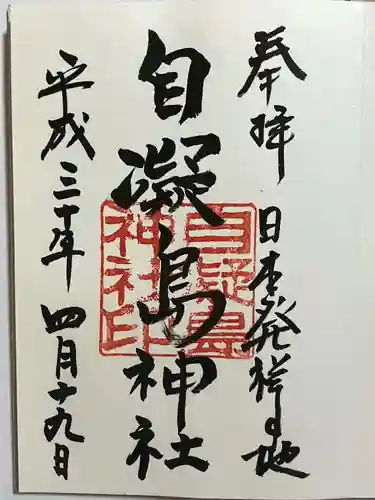 奉拝 日本発祥の地
自凝島神社
自凝島神社印
平成三十年四月十九日